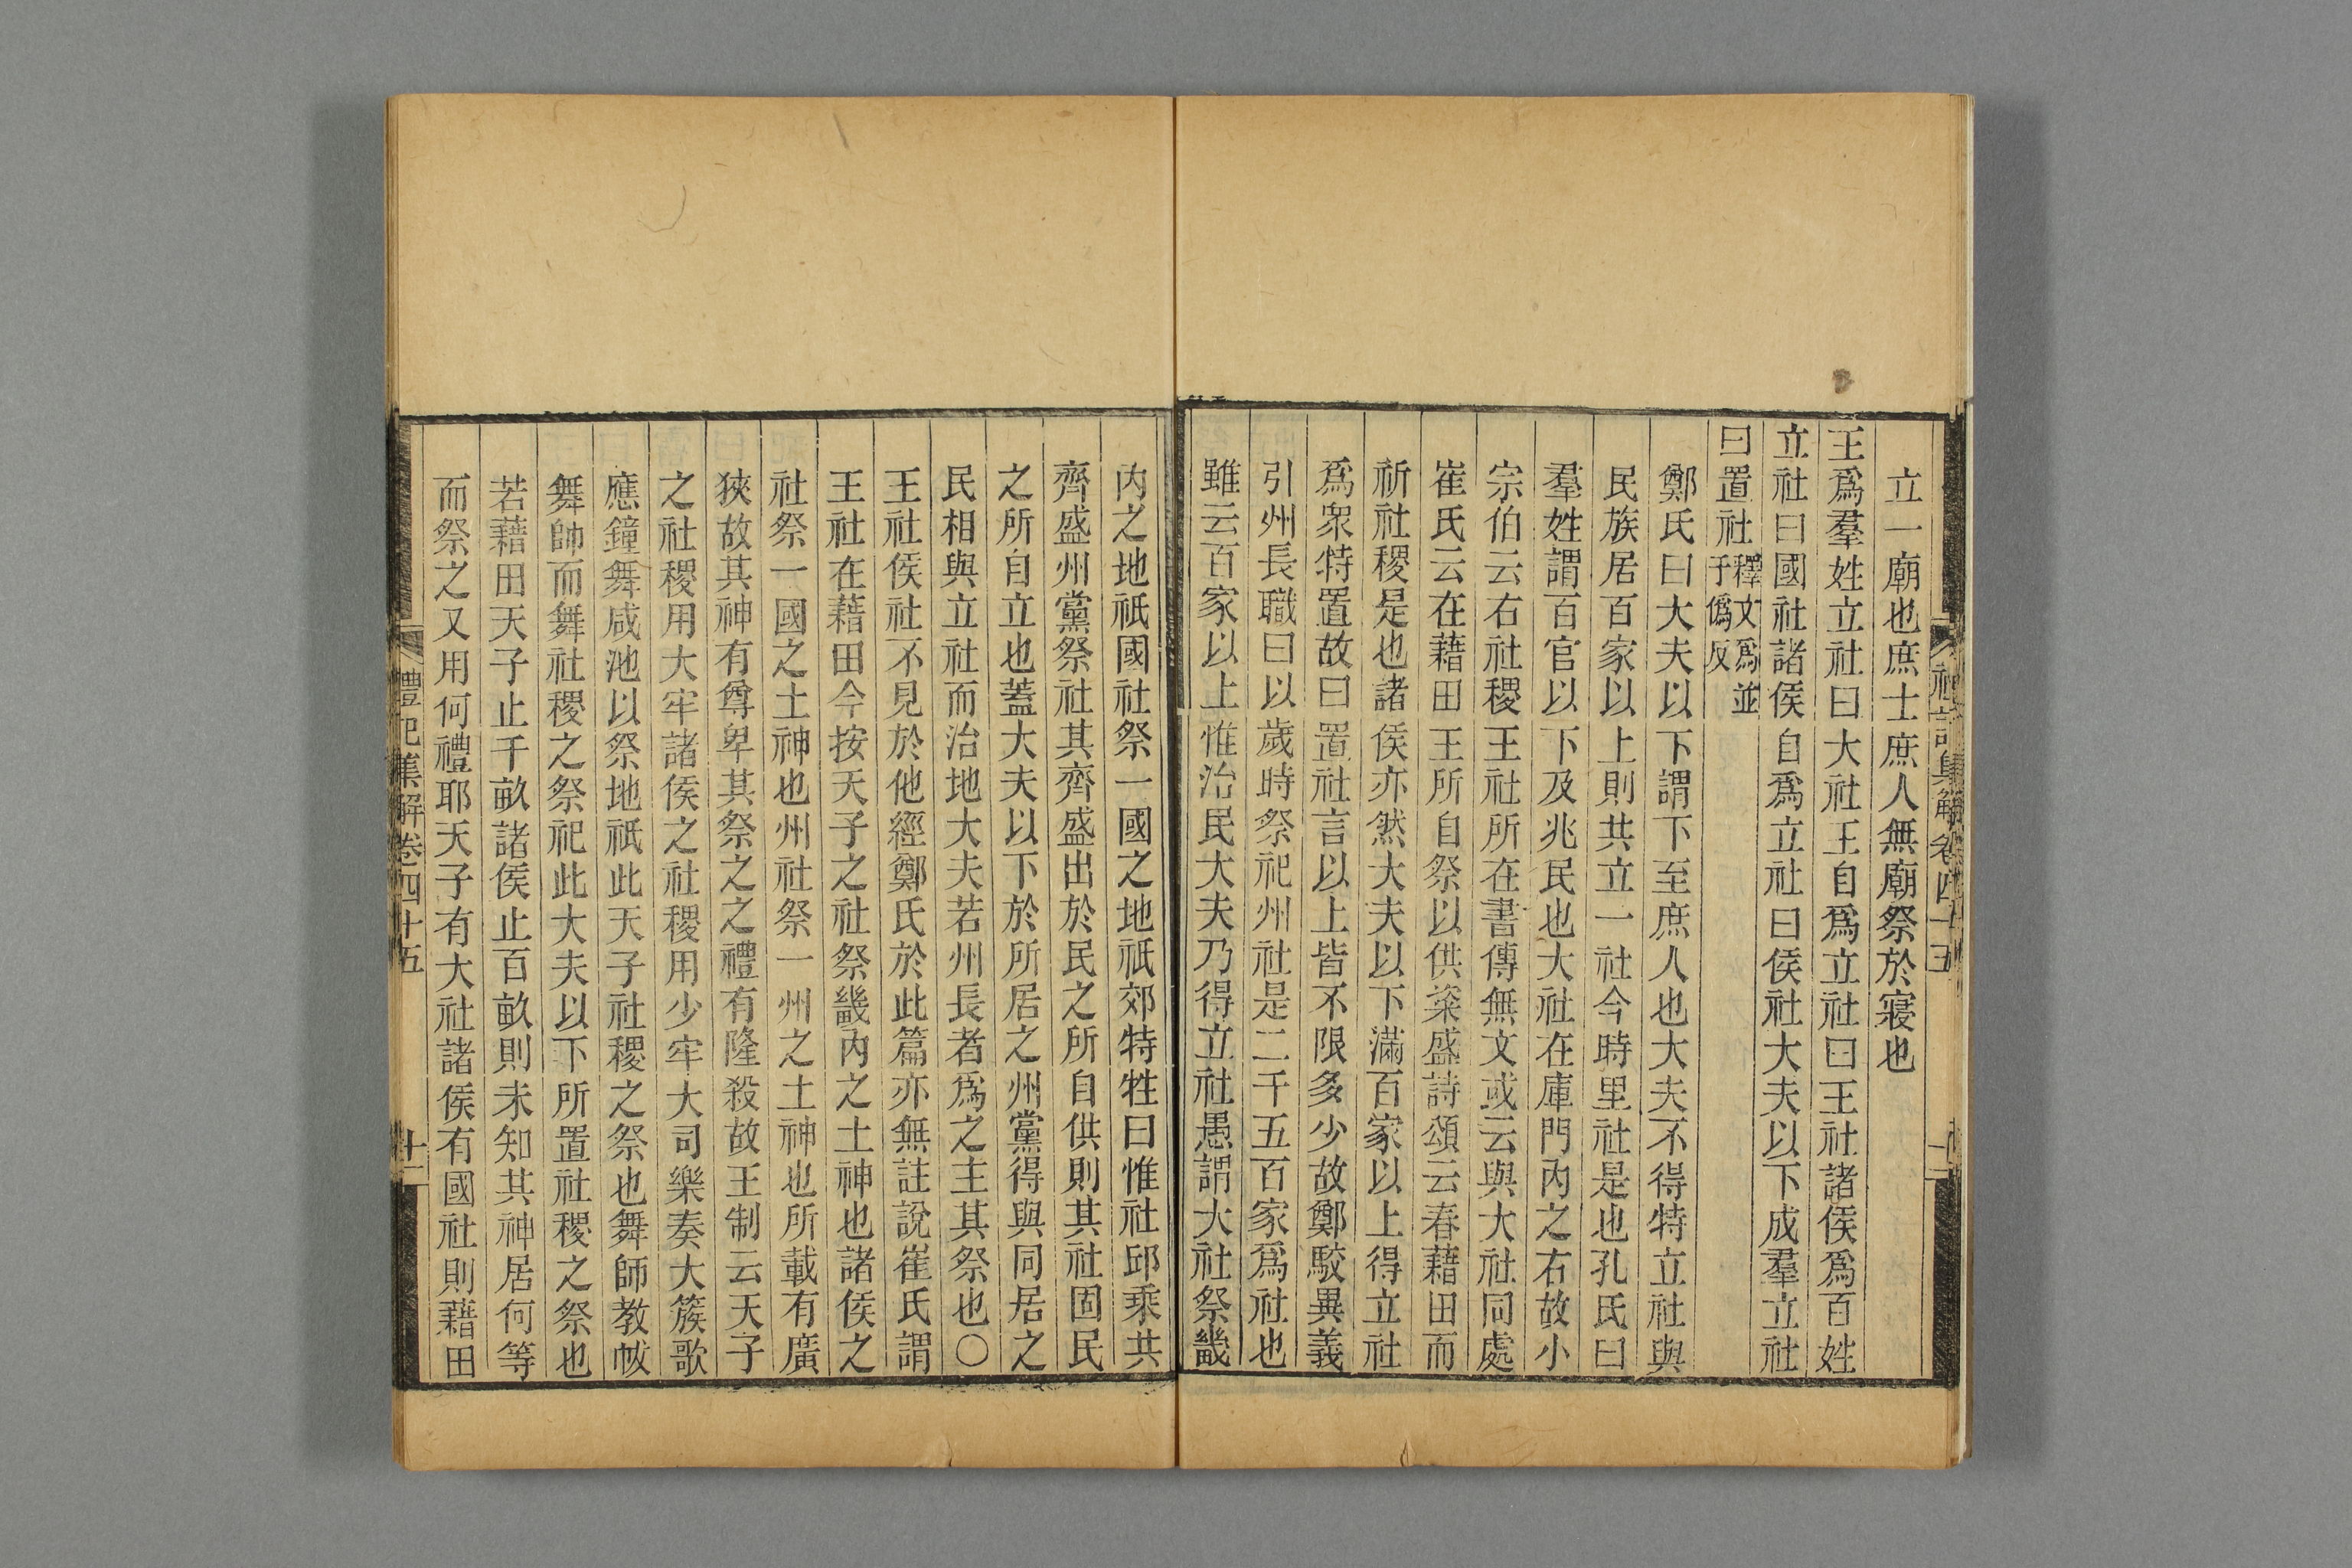 立一廟也庶士庶人無廟祭於寢也
王爲羣姓立社曰大社王自爲立社曰王社諸侯爲百姓
立社曰國社諸侯自爲立社曰侯社大夫以下成羣立社
曰置社釋文爲並于僞反
鄭氏曰大夫以下謂下至庶人也大夫不得特立社與
民族居百家以上則共立一社今時里社是也孔氏曰
羣姓謂百官以下及兆民也大社在庫門內之右故小
宗伯云右社稷王社所在書傳無文或云與大社同處
崔氏云在藉田王所自祭以供粢盛詩頌云春藉田而
祈社稷是也諸侯亦然大夫以下滿百家以上得立社
爲衆特置故曰置社言以上皆不限多少故鄭駮異義
引州長職曰以歲時祭祀州社是二千五百家爲社也
雖云百家以上惟治民大夫乃得立社愚謂大社祭畿
內之地祇國社祭一國之地祇郊特牲曰惟社邱乘共
齊盛州黨祭社其齊盛出於民之所自供則其社固民
之所自立也蓋大夫以下於所居之州黨得與同居之
民相與立社而治地大夫若州長者爲之主其祭也〇
王社侯社不見於他經鄭氏於此篇亦無註說崔氏謂
王社在藉田今按天子之社祭畿內之土神也諸侯之
社祭一國之土神也州社祭一州之土神也所載有廣
狹故其神有尊卑其祭之之禮有隆殺故王制云天子
之社稷用大牢諸侯之社稷用少牢大司樂奏大簇歌
應鐘舞咸池以祭地祇此天子社稷之祭也舞師教帗
舞帥而舞社稷之祭祀此大夫以下所置社稷之祭也
若藉田天子止千畝諸侯止百畝則未知其神居何等
而祭之又用何禮耶天子有大社諸侯有國社則藉田
禮記集解卷四十五
十一